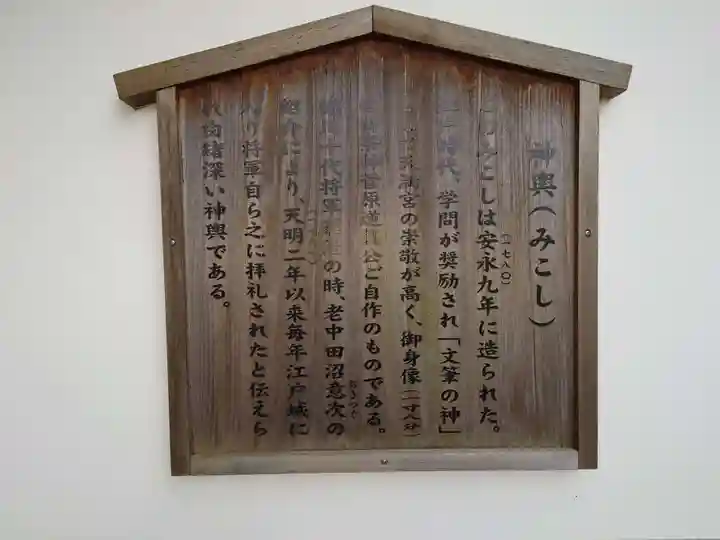 神輿(みこし)
みこしは安永九年に造られた。
(一七八〇)
時代、学問が奨励され「文筆の神」
満宮の崇敬が高く、御身像(一寸八分)
菅原道真公ご自作のものである。
十代将軍 の時、老中田沼意次の
おきつぐ
紹介により、天明二年以来毎年江戸城に
入り将軍自ら之に拝礼されたと伝えら
れ由緒深い神輿である。